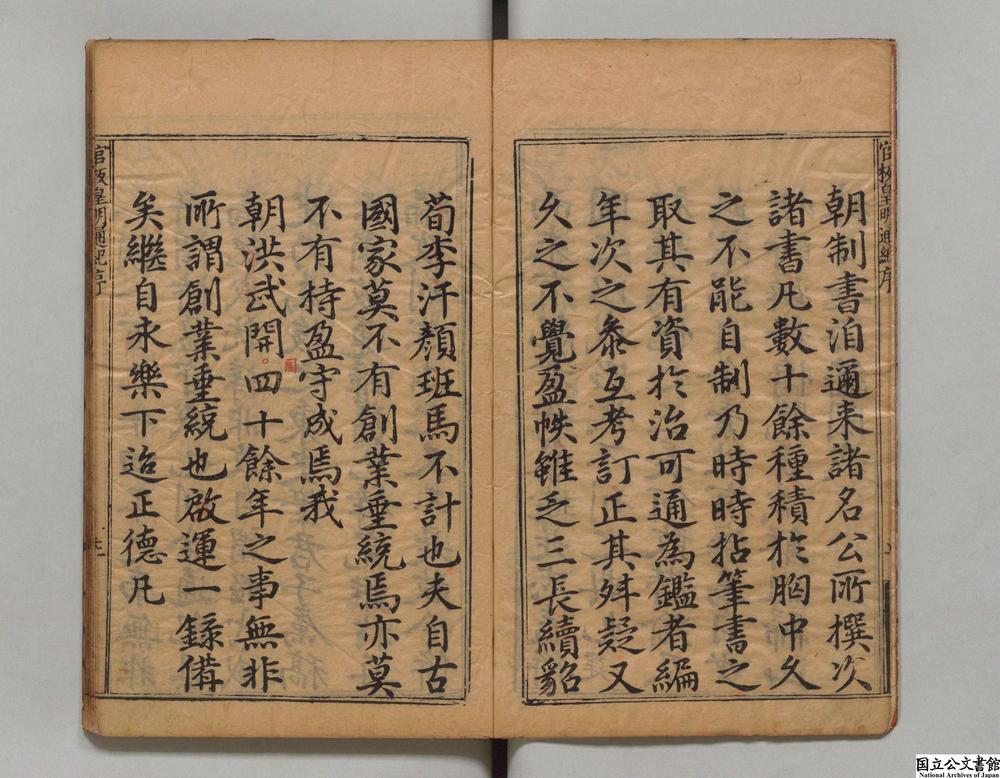 官板皇明通紀序
朝制書洎邇来諸名公所撰次
諸書凡數十餘種積於胸中久
之不能自制乃時時拈筆書之
取其有資於治可通為鑑者編
年次之叅互考訂正其舛疑又
久之不覺盈帙雖乏三長續貂
荀李汗顔班馬不計也夫自古
國家莫不有創業垂統焉亦莫
不有持盈守成焉我
朝洪武開。四十餘年之事無非
所謂創業垂統也啟運一録備
矣繼自永樂下迨正德凡
官板皇明通紀序
国立公文書館
National Archives of Japan